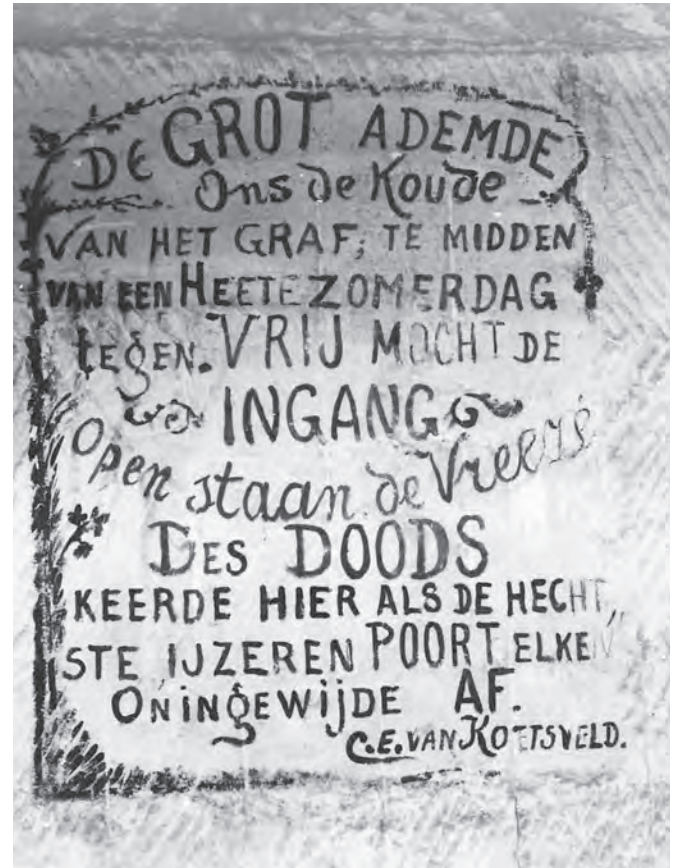 DE GROT ADEMDE
Ons de Koude
VAN HET GRAF; TE MIDDEN
VAN EEN HEETE ZOMERDAG
tEGEN. VRIJ MOCHT DE
INGANG
Open staan de Vreeze
DES DOODS
KEERDE HIER ALS DE HECHT„
STE IJZEREN POORT ELKEN
ONiNGEWijDE AF.
C.E. VAN KOETSVELD.